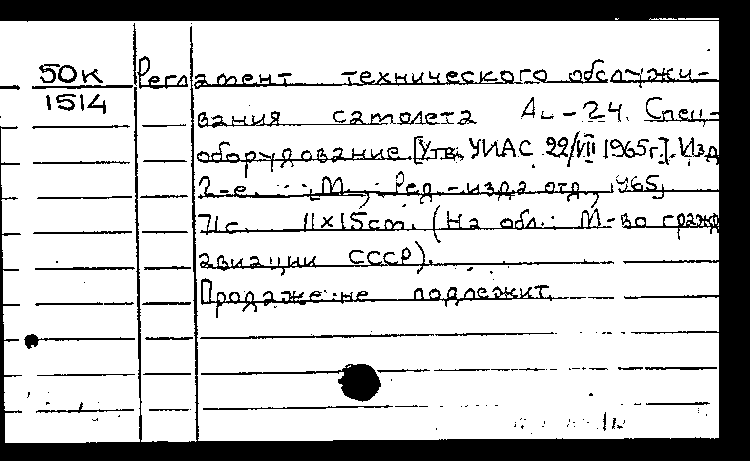 50к
1514
Регламент технического обслужи-
вания самолета Ан-24. Спец-
оборудование. [Утв. УИАС 22/VII 1965г.]. Изд.
2-е. М., Ред.-изд. отд., 1965.
71с. 11х15см. (На обл.: М-во гражд.
авиации СССР).
Продаже не подлежит.